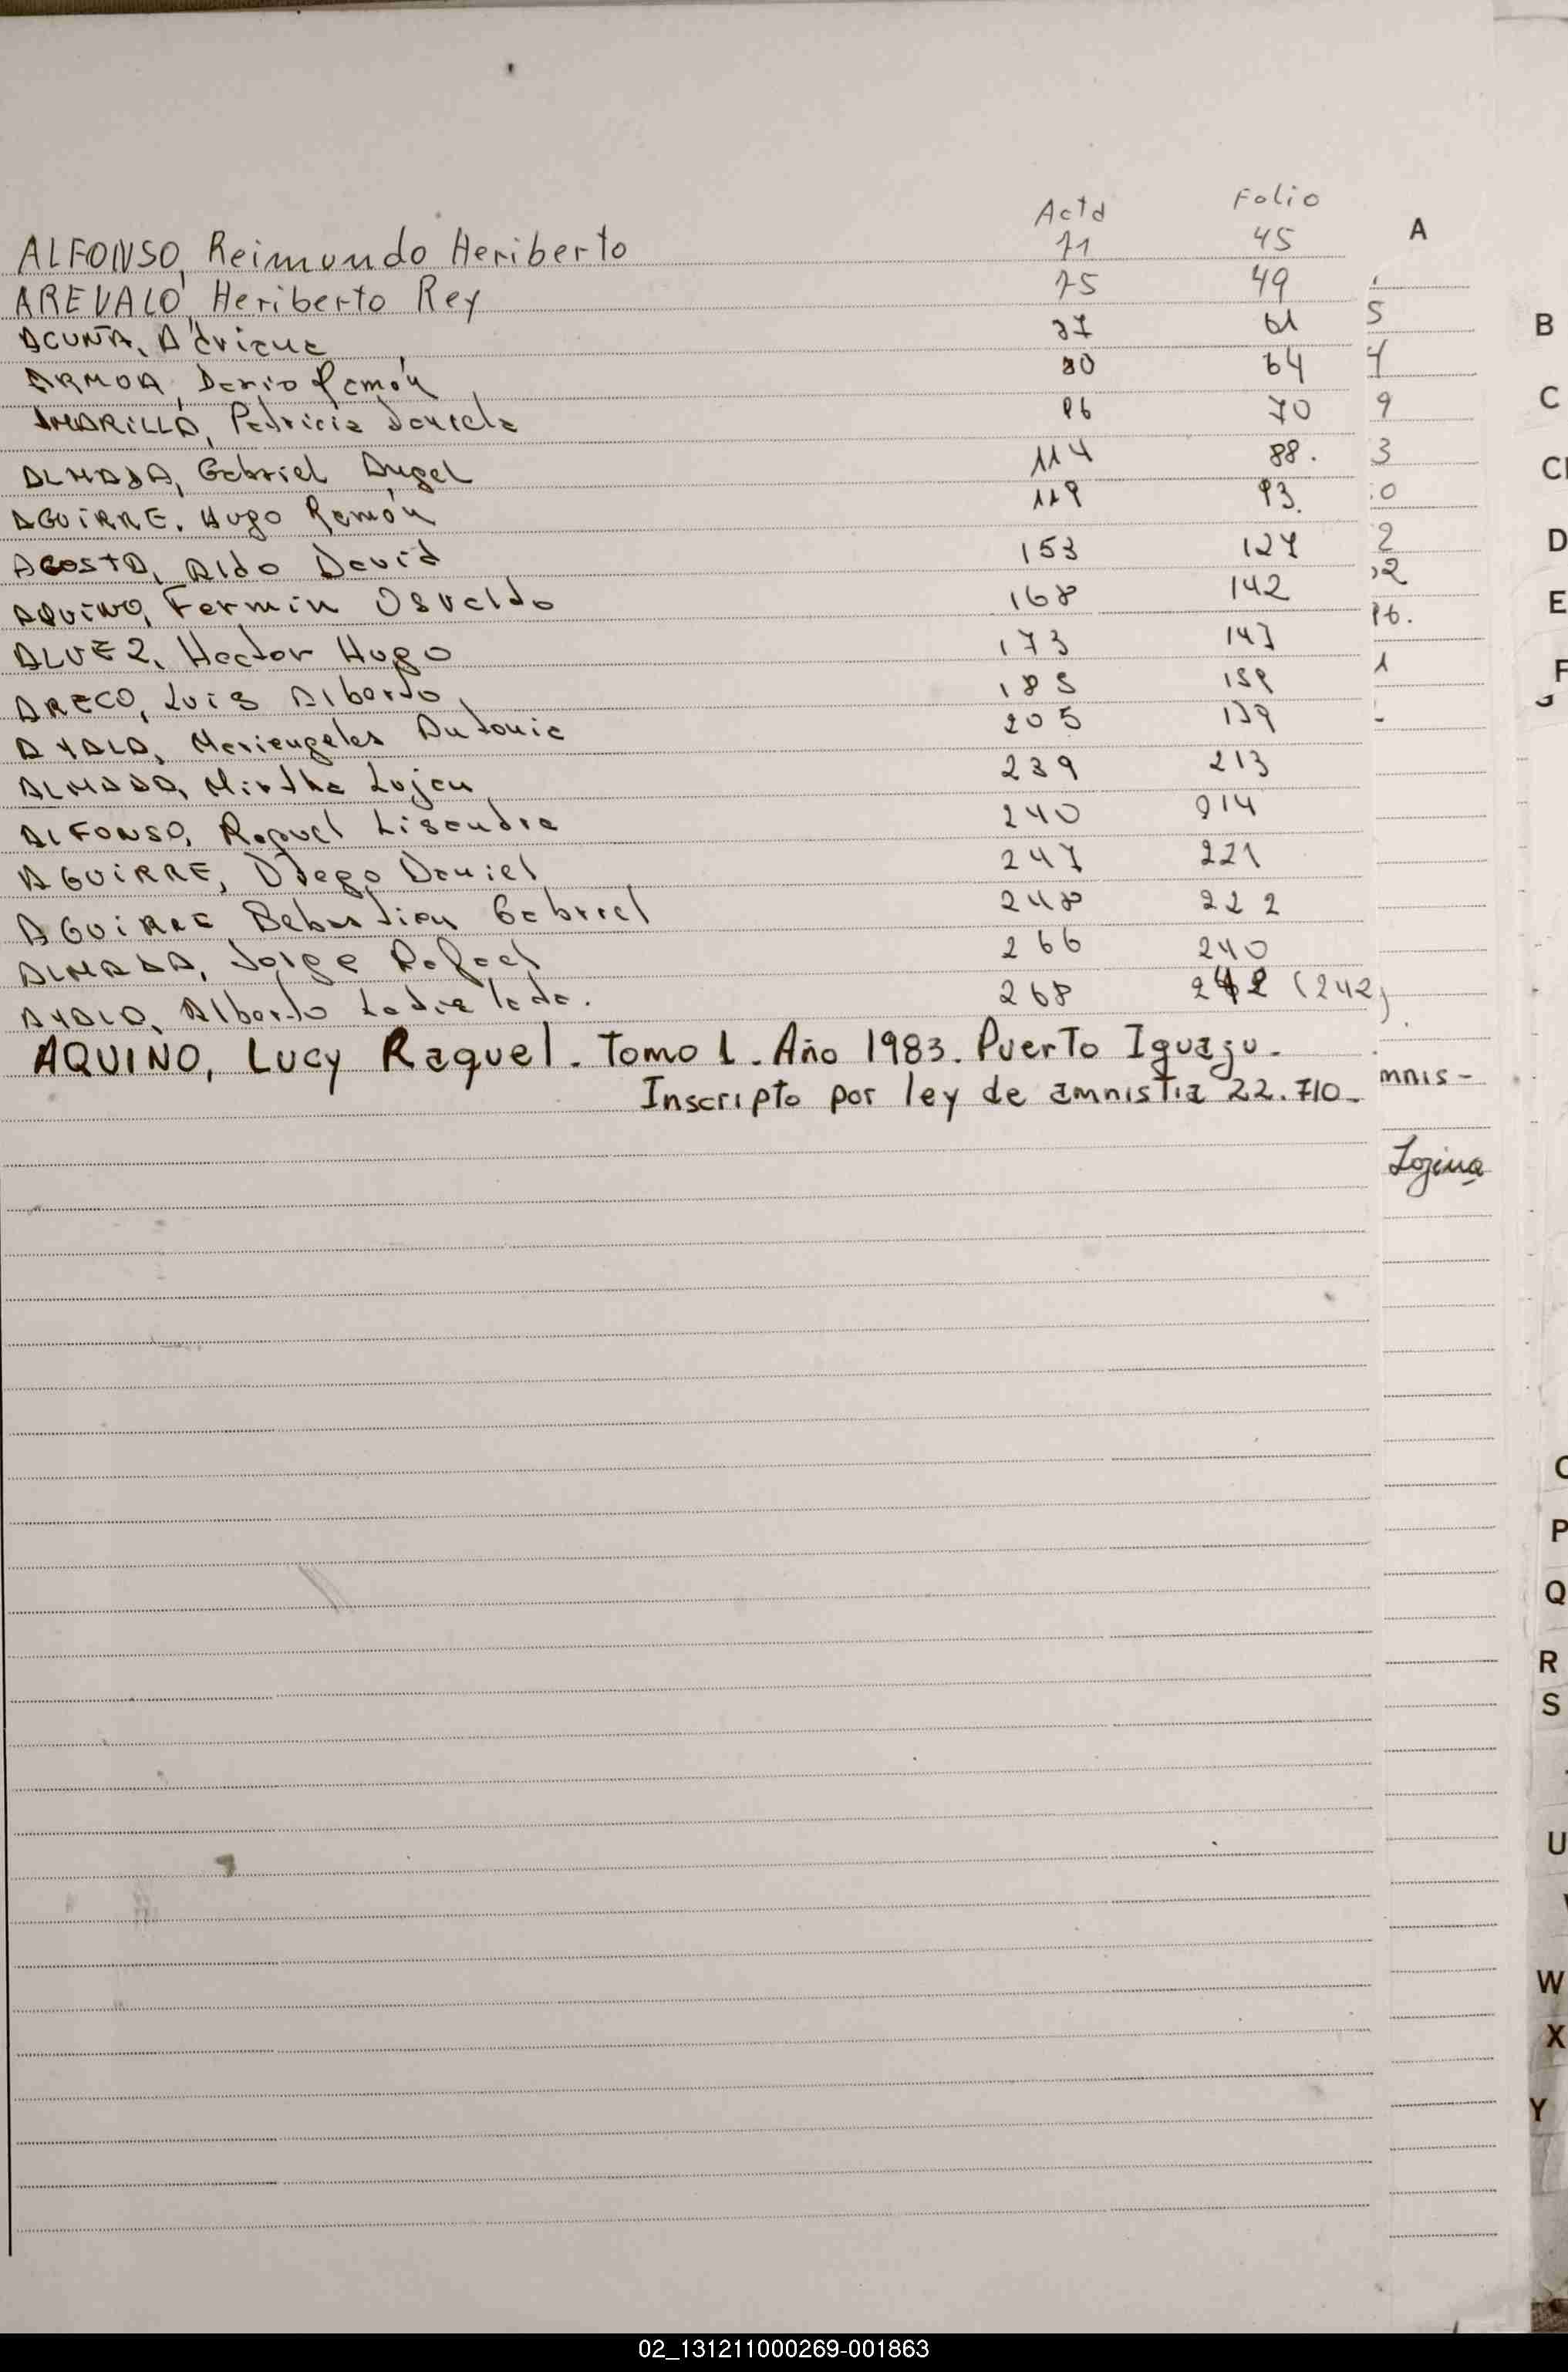 Acta Folio
A
ALFONSO, Reimundo Heriberto 71 45
AREVALO, Heriberto Rey 75 49
ACUÑA, Adriana 87 61
ARMOA, Dario Ramón 90 64
AMARILLA, Patricia Daniela 96 70
ALMADA, Gabriel Angel 114 88.
AGUIRRE, Hugo Ramón 119 93.
ACOSTA, Aldo David 153 127
AQUINO, Fermin Osvaldo 168 142
ALVEZ, Hector Hugo 173 147
ARECO, Luis Alberto 185 159
AYALA, Mariangeles Antonia 205 179
ALMADA, Mirtha Lujan 239 213
ALFONSO, Raquel Lisandra 240 214
AGUIRRE, Diego Daniel 247 221
AGUIRRE Sebastian Gabriel 248 222
ALMADA, Jorge Rafael 266 240
AYALA, Alberto 268 242 (242)
AQUINO, Lucy Raquel. Tomo 1. Año 1983. Puerto Iguazu.
Inscripto por ley de amnistia 22.710.
5
4
9
3
0
2
mnis-
B
C
D
E
F
P
Q
R
S
U
W
X
Y
02_131211000269-001863